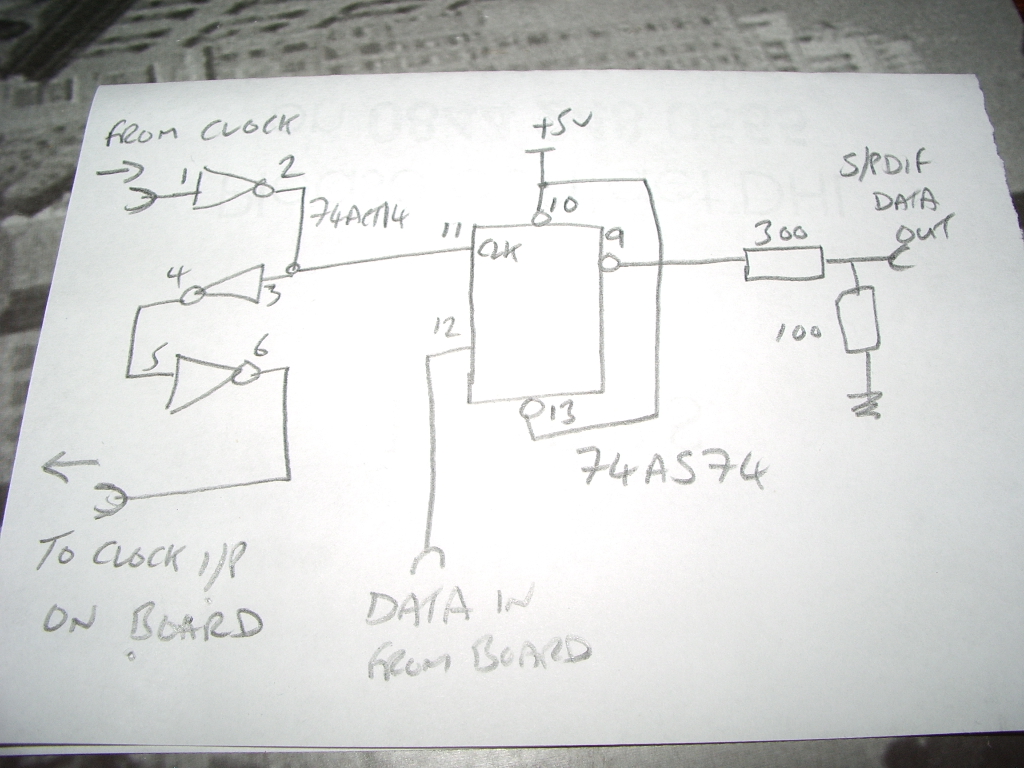 FROM CLOCK
1
2
74ACT14
4
3
5
6
TO CLOCK I/P
ON BOARD
+5V
10
11
CLK
9
12
13
74AS74
DATA IN
FROM BOARD
300
100
S/PDIF
DATA
OUT